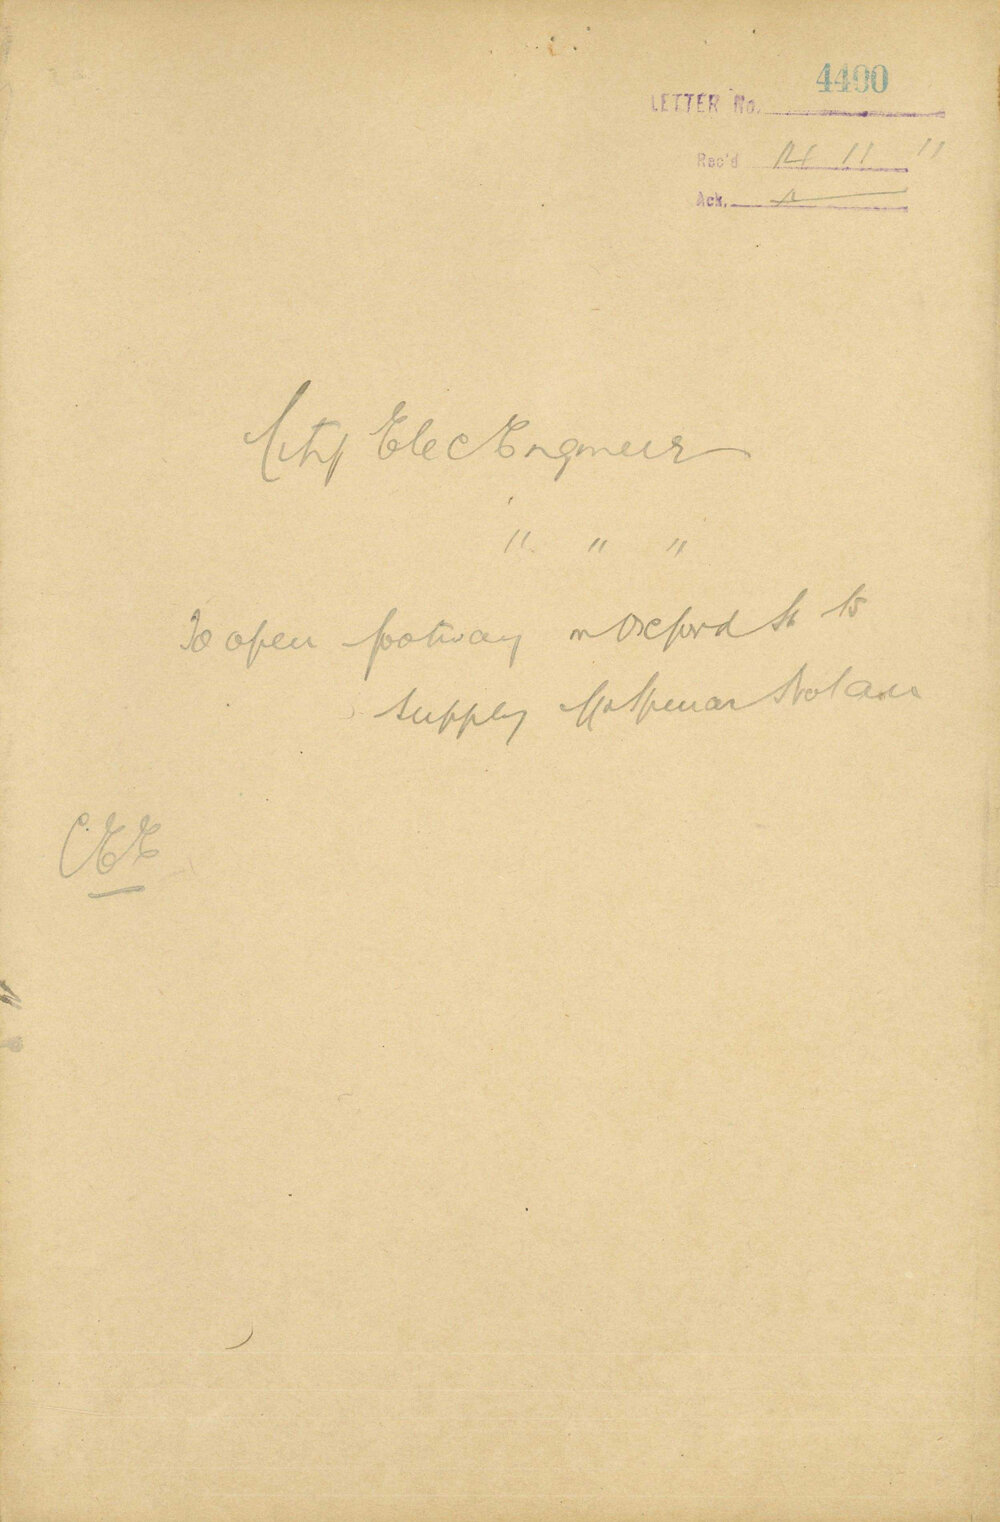 4400
LETTER No.
Rec'd 14 11 11
Ack.
City Elec Engineer
" " "
To open footway in Oxford St to
supply
C.E.E